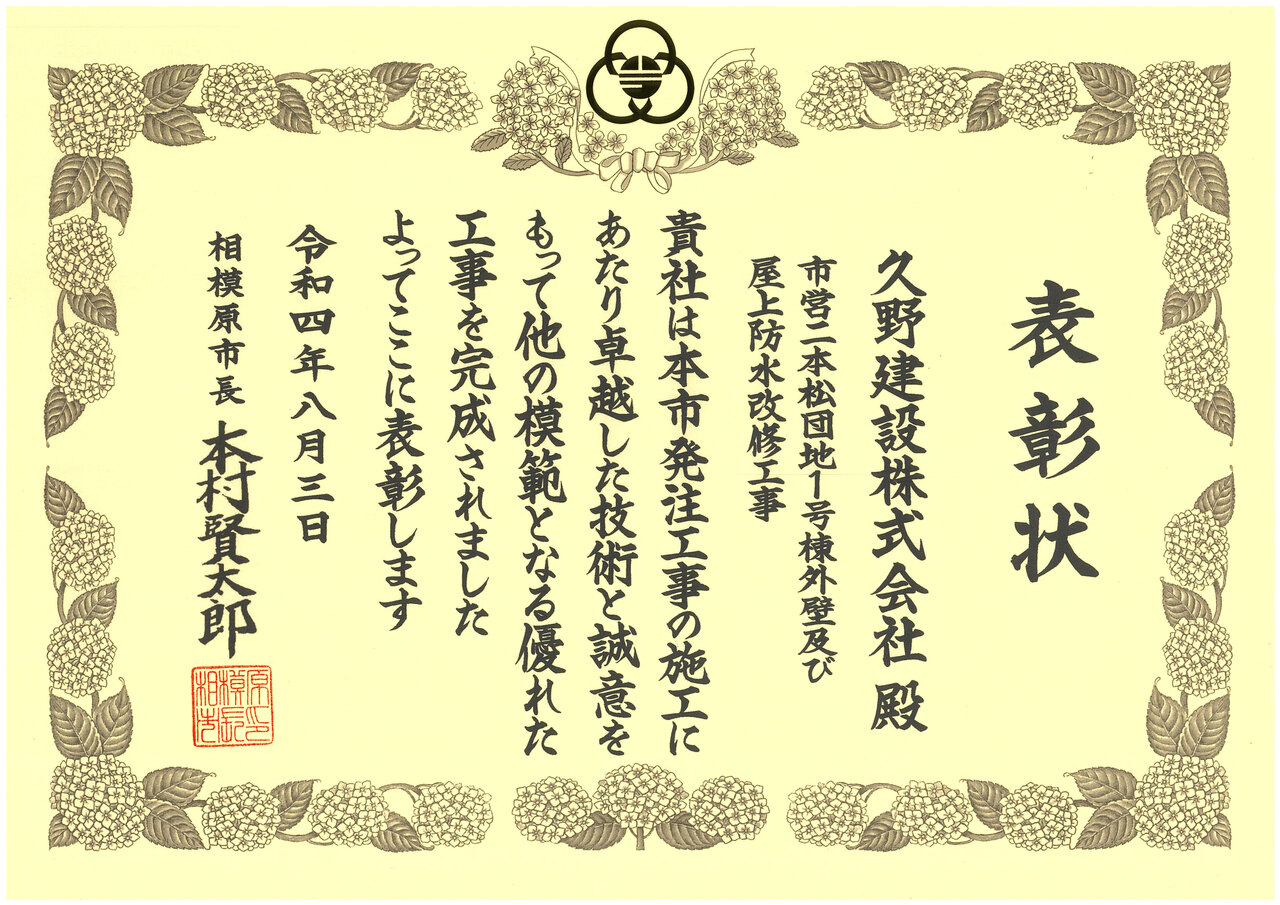 表彰状
久野建設株式会社 殿
市営二本松団地1号棟外壁及び
屋上防水改修工事
貴社は本市発注工事の施工に
あたり卓越した技術と誠意を
もって他の模範となる優れた
工事を完成されました
よってここに表彰します
令和四年八月三日
相模原市長 本村賢太郎
相模原市長印